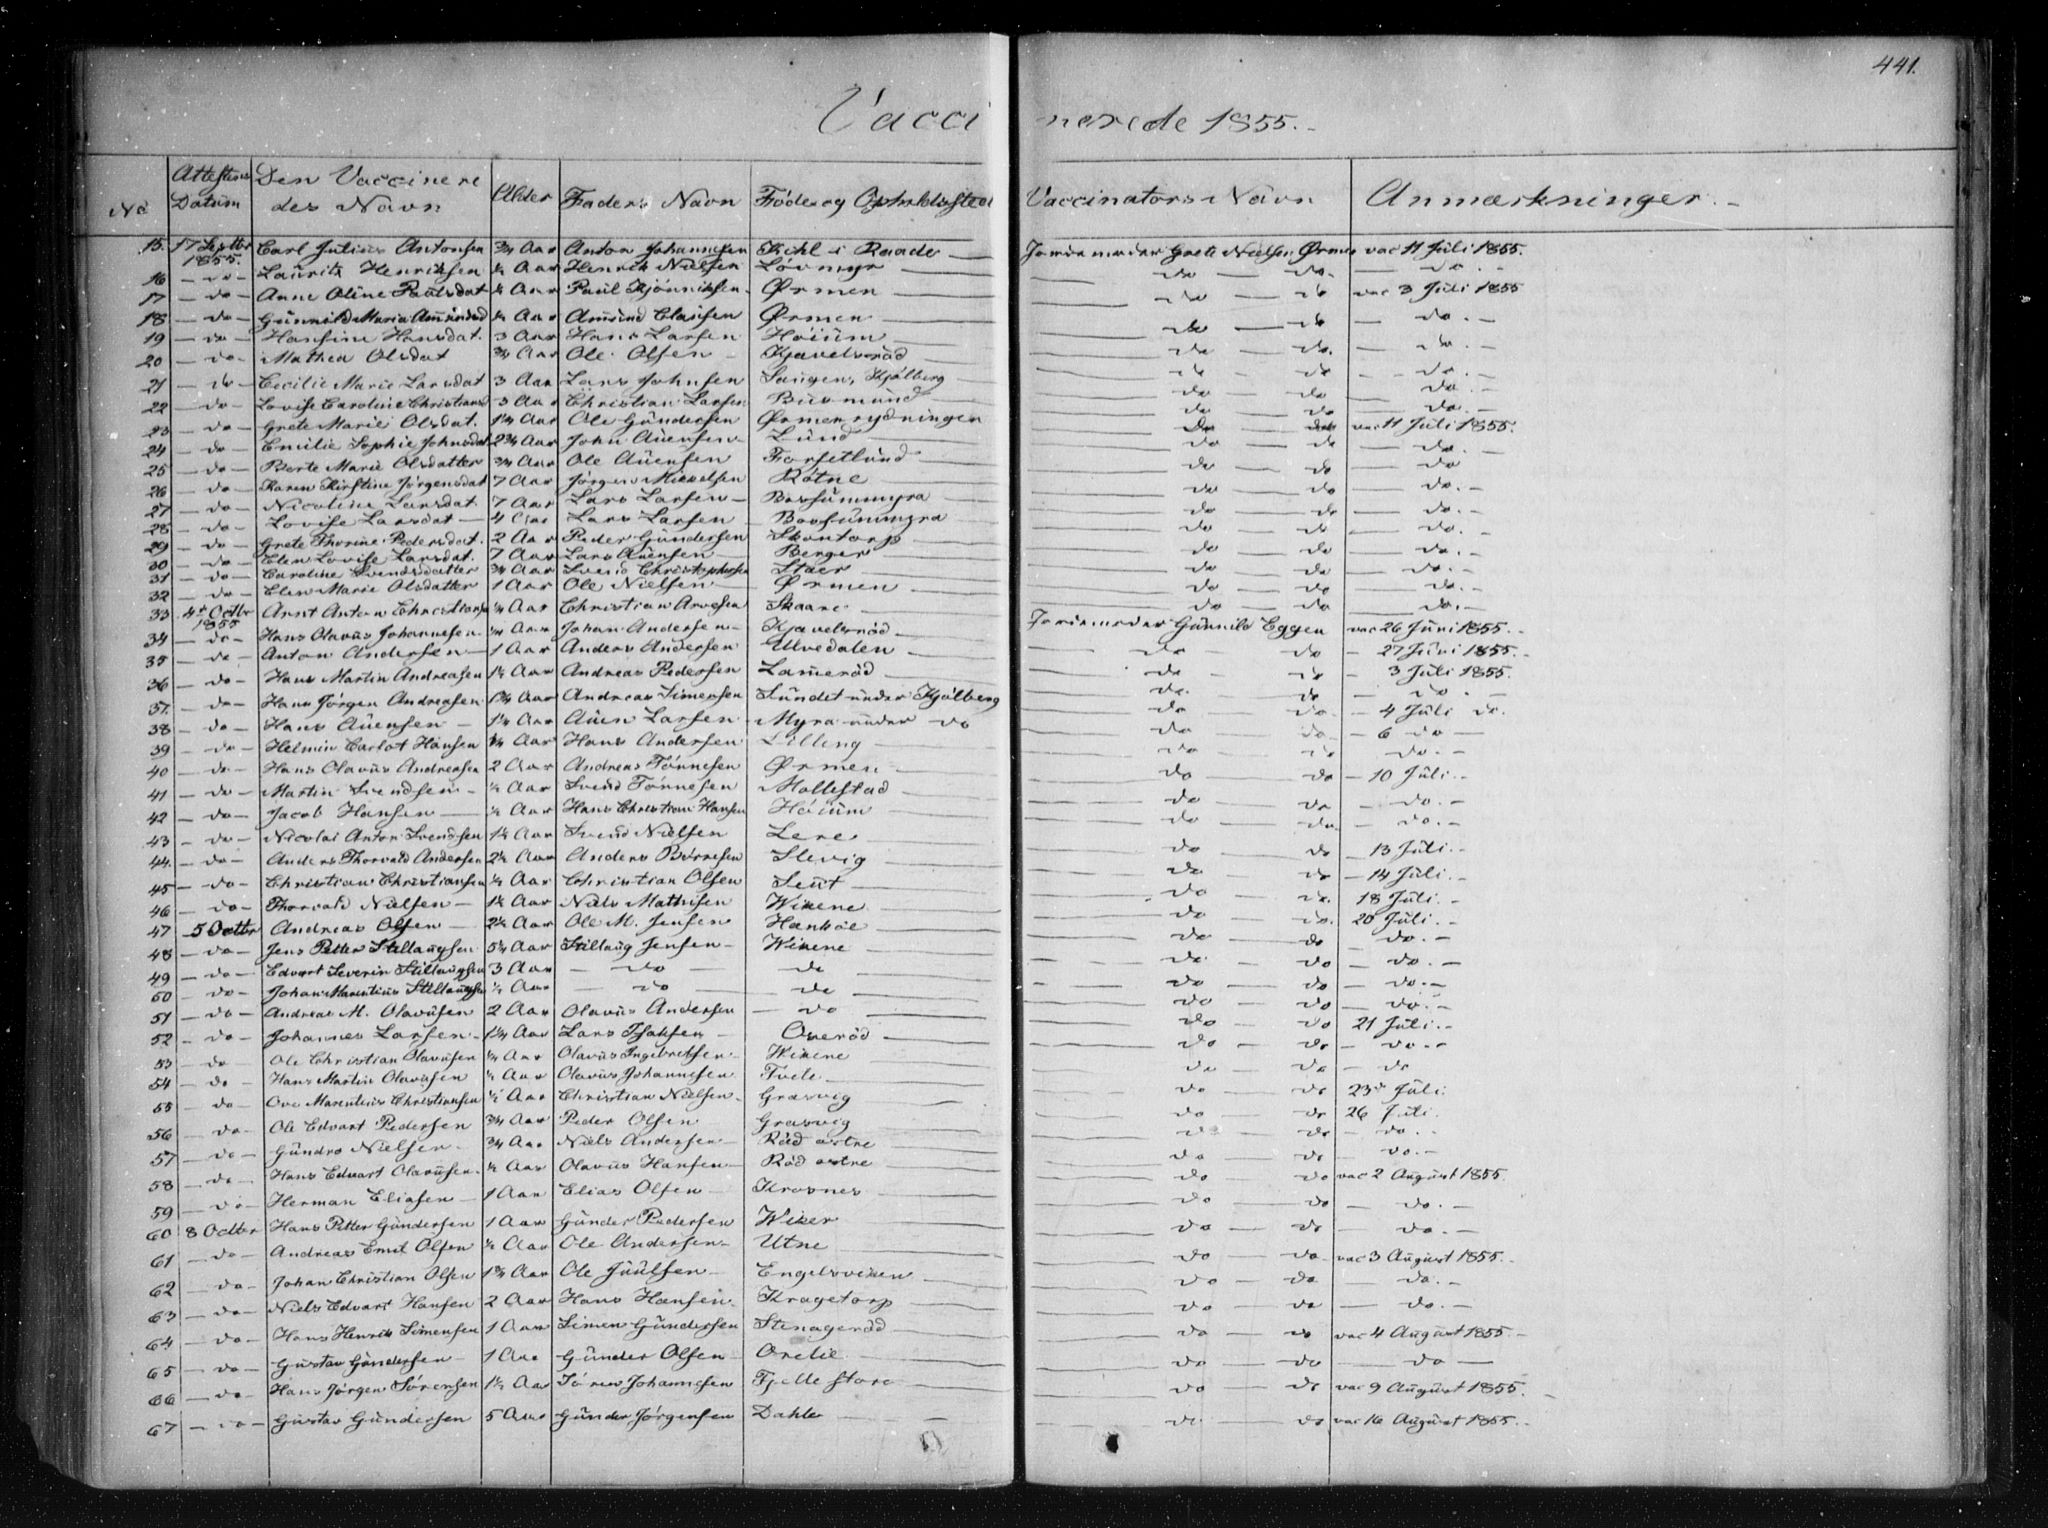 441.
Vaccinerede 1855.
No | Attestens Datum | Den Vaccineredes Navn | Alder | Faders Navn | Føde og Opholdssted | Vaccinators Navn | Anmærkninger
15. 17 Septbr 1855. Carl Julius Antonsen ¾ Aar Anton Johannesen Kihl i Raade Jordemoder Grete Nielsen Ørmen vac 11 Juli 1855.
16 — do — Lauritz Henriksen ½ Aar Henrik Nielsen Lövmyr do do — do —
17 — do — Anne Oline Paulsdat Aar Paul Kjönniksen Ørmen do do vac 3 Juli 1855
18 — do — Gunnild Maria Amundsd Aar Amund Claüsen Ørmen do do — do. —
19 — do — Hansine Hansdat. 3 Aar Hans Larsen Höium do do. — do. —
20 — do — Mathea Olsdat ¾ Aar Ole Olsen Kjævelsröd do do — do. —
21 — do — Cecilie Marie Larsdat 3 Aar Lars Johnsen Saugen, Kjölberg do do do. —
22 — do — Lovise Caroline Christiansd 3 Aar Christian Larsen Buvmund do do — do. —
23 — do — Grete Marie Olsdat. Aar Ole Gundersen Ørmenrydningen do do vac 11 Juli 1855.
24 — do — Emilie Sophie Johnsdat 2¾ Aar John Auensen Lund do do — do. —
25 — do — Berte Marie Olsdatter ¾ Aar Ole Auensen Torsetlund do do — do
26 — do — Karen Kirstine Jörgensdat 7 Aar Jörgen Mickelsen Rötne do do — do. —
27 — do — Nicoline Larsdat. 7 Aar Lars Larsen Bossummyra do do. — do. —
28 — do — Lovise Larsdat 4 Aar Lars Larsen Bossummyra do do — do. —
29 — do — Grete Thorine Pedersdat. 2 Aar Peder Gundersen Skontorp do do — do. —
30 — do — Elen Lovise Larsdat. 7 Aar Lars Auensen Berger do do — do. —
31 — do — Caroline Svendsdatter ¾ Aar Svend Christophersen Staer do do — do. —
32 — do — Elen Marie Olsdatter 1 Aar Ole Nielsen Ørmen do do — do. —
33 4de Octbr 1855 Arnt Anton Christiansen Aar Christian Arnesen Skaare Jordemoder Gunnild Eggen vac 26 Juni 1855. —
34 — do — Hans Olavus Johannesen Aar Johan Andersen Kjævelsröd do do — 27 Juni 1855. —
35 — do — Anton Andersen 1 Aar Anders Andersen Ulvedalen do do — 3 Juli 1855.
36 — do — Hans Martin Andreasen Aar Andreas Pedersen Lameröd do. do — do. —
37. — do — Hans Jörgen Andreasen Aar Andreas Simensen Sundet under Kjölberg do do. — 4 Juli do.
38 — do — Hans Auensen Aar Auen Larsen Myra under do do do — 6 do —
39 — do — Helmin Carlot Hansen Aar Hans Andersen Lilleng do do — do. —
40 — do — Hans Olavus Andreasen 2 Aar Andreas Tönnesen Ørmen do do — 10 Juli. —
41 — do — Martin Svendsen Aar Svend Tönnesen Mollestad do do — do. —
42 — do — Jacob Hansen Aar Hans Christian Hansen Höium do do. — do. —
43 — do — Nicolai Anton Svendsen Aar Svend Nielsen Lere do do — 13 Juli. —
44. — do — Anders Thorvald Andersen Aar Anders Börresen Slevig do do — 14 Juli. —
45 — do — Christian Christiansen Aar Christian Olsen Seut do do. 18 Juli. —
46 — do — Thorvald Nielsen Aar Niels Mathisen Wikene do do. 20 Juli. —
47 5 Octbr Andreas Olsen Aar Ole M. Jensen Hankøe do do — do. —
48 — do — Jens Petter Stillaugsen Aar Stillaug Jensen Wikene do do — do. —
49 — do — Edvart Severin Stillaugsen 3 Aar — do — do do do — do. —
50 — do — Johan Marentius Stillaugsen Aar — do — do do do — do. —
51 — do — Andreas M. Olavusen 2 Aar Olavus Andersen — do do do 21 Juli. —
52 — do — Johannes Larsen Aar Lars Isaksen Overöd do do — do. —
53 do Ole Christian Olavusen Aar Olavus Ingebretsen Wikene do do — do
54 — do — Hans Martin Olavusen Aar Olavus Johannesen Tvete do do 23de Juli.
55 — do — Ove Marentius Christiansen Aar Christian Nielsen Græsvig do do 26 Juli.
56 — do — Ole Edvart Pedersen ¾ Aar Peder Olsen Græsvig do do — do. —
57 — do — Gundro Nielsen ¾ Aar Niels Andersen Röd østre do do — do. —
58 — do — Hans Edvart Olavusen Aar Olavus Hansen Röd østre do do vac 2 August 1855.
59 — do — Herman Eliasen 1 Aar Elias Olsen Krosnes do do — do. —
60 8 Octbr Hans Petter Gundersen 1 Aar Gunder Pedersen Wiker do do — do. —
61 — do — Andreas Emil Olsen Aar Ole Andersen Utne do do vac 3 August 1855. —
62 — do — Johan Christian Olsen Aar Ole Juulsen Engelsviken do do do. —
63 — do — Niels Edvart Hansen 2 Aar Hans Hansen Kragetorp do do — do. —
64 — do — Hans Henrik Simensen 1 Aar Simen Gundersen Stenageröd do do vac 4 August 1855. —
65 — do — Gustav Gundersen 1 Aar Gunder Olsen Orelie do do — do —
66 — do — Hans Jörgen Sörensen Aar Sören Johannesen Fjelle store do do vac 9 August 1855.
67 — do — Gustav Gundersen 5 Aar Gunder Jörgensen Dahle do do vac 16 August 1855. —